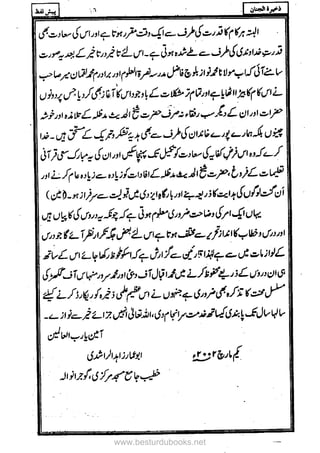 ذخیرة الجنان ٦ پیش لفظ
البتہ ہر کام کا قدرت کی طرف سے ایک وقت مقرر ہوتا ہے اور اس کی سعادت بھی
قدرت خداوندی کی طرف سے طے شدہ ہوتی ہے۔ اس لئے تاخیر در تاخیر کے بعد یہ صورت
سامنے آئی کہ اب مولانا محمد نواز بلوچ فاضل مدرسہ نصرة العلوم اور برادرم محمد لقمان میر صاحب
نے اس کام کا بیڑا اٹھایا ہے اور تمام تر مشکلات کے باوجود اس کا آغاز بھی کر دیا ہے جس پر دونوں
حضرات اور ان کے دیگر سب رفقاء نہ صرف حضرت شیخ الحدیث مدظلہ کے تلامذہ اور خوشہ
چینوں بلکہ ہمارے پورے خاندان کی طرف سے بھی ہدیہ تشکر وتبریک کے مستحق ہیں۔ خدا
کرے کہ وہ اس فرض کفایہ کی سعادت کو تکمیل تک پہنچا سکیں اور ان کی یہ مبارک سعی قرآنی
تعلیمات کے فروغ، حضرت شیخ الحدیث مدظلہ کے افادات کو زیادہ سے زیادہ عام کرنے اور ان
گنت لوگوں کی ہدایت کا ذریعہ بنے اور بارگاہ ایزدی میں قبولیت سے سرفراز ہو۔ (آمین)
یہاں ایک امر کی وضاحت ضروری معلوم ہوتی ہے کہ چونکہ یہ دروس کی کاپیاں ہیں
اور درس و خطاب کا انداز تحریر سے مختلف ہوتا ہے اس لئے بعض جگہ تکرار نظر آئے گا جو درس
کے لوازمات میں سے ہے لہٰذا قارئین سے گزارش ہے کہ اسکو ملحوظ رکھا جائے اس کے ساتھ
ہی ان دروس کے ذریعے محفوظ کرنے میں محمد اقبال آف دبئی اور محمد سرور منہاس آف گکھڑ کی
مسلسل محنت کا تذکرہ بھی ضروری ہے جنہوں نے اس عظیم علمی ذخیرہ کو ریکارڈ کرنے کیلئے
سالہا سال تک پابندی کے ساتھ خدمت سرانجام دی، اللہ تعالیٰ انہیں جزائے خیر سے نوازے۔
آمین یا رب العالمین
یکم مارچ ٢٠٠٢ء ابو عمار زاہد الراشدی
خطیب جامع مسجد مرکزی، گوجرانوالہ
www.besturdubooks.net